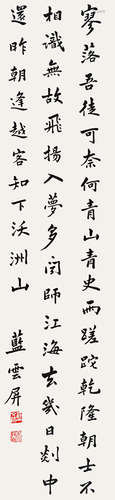 寥落吾徒可奈何青山青史兩蹉跎乾隆朝士不
相識無故飛揚入夢多問師江海去幾日剡中
還昨朝逢越客知下沃洲山
藍雲屏